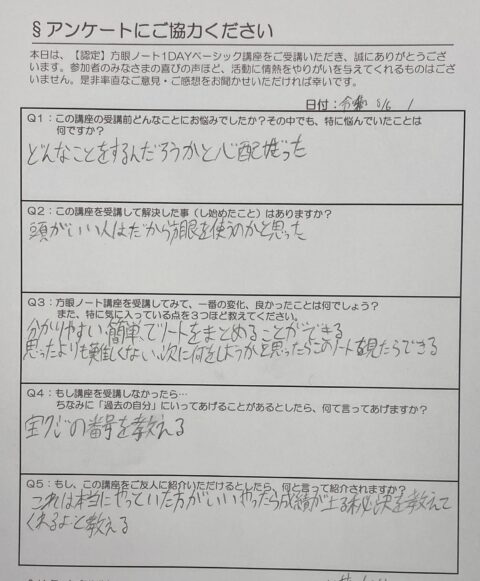 §アンケートにご協力ください
本日は、【認定】方眼ノート1DAYベーシック講座をご受講いただき、誠にありがとうござ
います。参加者のみなさまの喜びの声ほど、活動に情熱をやりがいを与えてくれるものはござ
いません。是非率直なご意見・ご感想をお聞かせいただければ幸いです。
日付：令和
Q1：この講座の受講前どんなことにお悩みでしたか？その中でも、特に悩んでいたことは
何ですか？
どんなことをするんだろうかと心配だった
Q2：この講座を受講して解決した事（し始めたこと）はありますか？
頭がいい人はだから方眼を使うのかと思った
Q3：方眼ノート講座を受講してみて、一番の変化、良かったことは何でしょう？
また、特に気に入っている点を３つほど教えてください。
分かりやすい、簡単でノートをまとめることができる
思ったよりも難しくない、次に何をしようかと思ったらこのノートを見たらできる
Q4：もし講座を受講しなかったら…
ちなみに「過去の自分」にいってあげることがあるとしたら、何て言ってあげますか？
宝くじの番号を教える
Q5：もし、この講座をご友人に紹介いただけるとしたら、何と言って紹介されますか？
これは本当にやっていた方がいいやったら成績が上る秘決を教えて
くれるよと教える